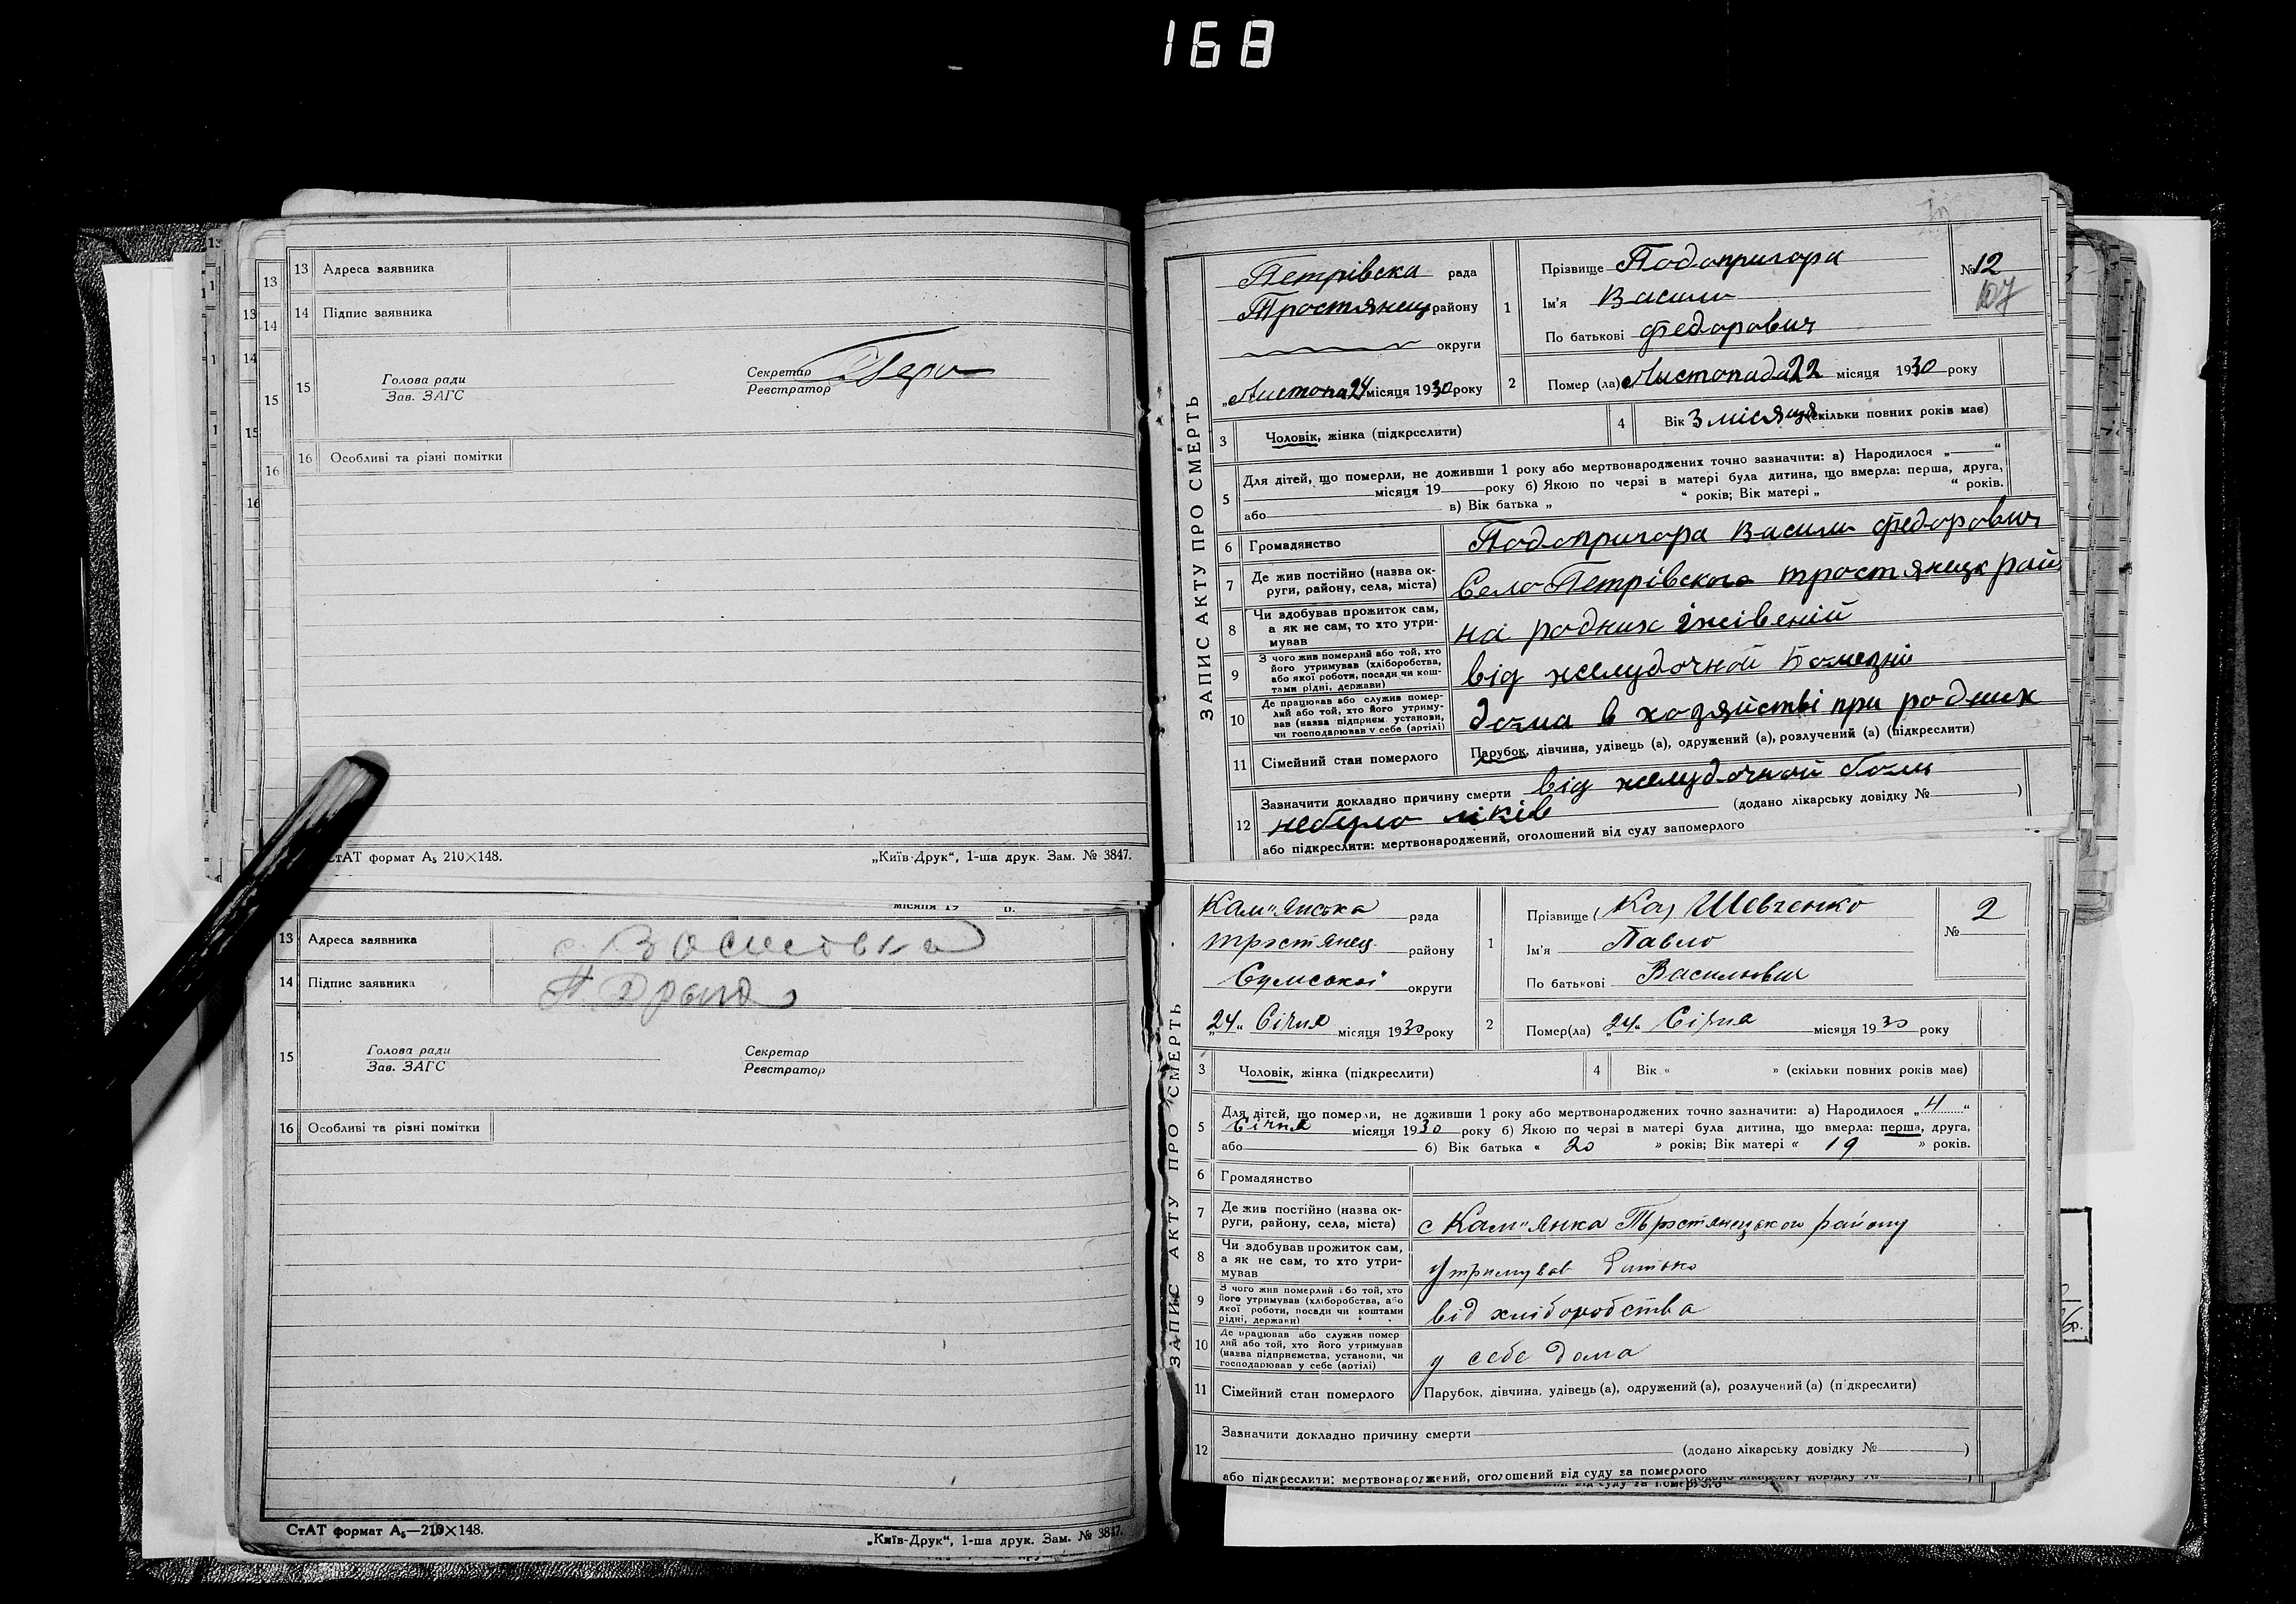 168
13 Адреса заявника
14 Підпис заявника
15 Голова ради
Зав. ЗАГС
Секретар
Реєстратор
16 Особливі та різні помітки
СтАТ формат А₅ 210×148.
„Київ-Друк“, 1-ша друк. Зам. № 3847.
13 Адреса заявника
14 Підпис заявника
15 Голова ради
Зав. ЗАГС
Секретар
Реєстратор
16 Особливі та різні помітки
СтАТ формат А₅—210×148.
„Київ-Друк“, 1-ша друк. Зам. № 3847.
ЗАПИС АКТУ ПРО СМЕРТЬ
Петрівска рада
Тростянец району
округи
„Листопа 24 місяця 1930 року
1 Прізвище Подопригора
Ім'я Васили
По батькові Федорович
№ 12
107
2 Помер (ла) Листопада 22 місяця 1930 року
3 Чоловік, жінка (підкреслити)
4 Вік 3 місяця (скільки повних років має)
5 Для дітей, що померли, не доживши 1 року або мертвонароджених точно зазначити: а) Народилося „ “
місяця 19 року б) Якою по черзі в матері була дитина, що вмерла: перша, друга,
або в) Вік батька „ “ років; Вік матері „ “ років.
6 Громадянство Подопригора Васили Федорович
7 Де жив постійно (назва округи, району, села, міста) Село Петрівского тростянецк рай
8 Чи здобував прожиток сам, а як не сам, то хто утримував на родних
9 З чого жив померлий або той, хто його утримував (хліборобства, або якої роботи, посади чи коштами рідні, держави) від желудочной болезні
10 Де працював або служив померлий або той, хто його утримував (назва підприєм. установи, чи господарював у себе (артілі) дома в хозяйстві при родних
11 Сімейний стан померлого Парубок, дівчина, удівець (а), одружений (а), розлучений (а) (підкреслити)
12 Зазначити докладно причину смерти від желудочной боли
небуло ліків (додано лікарську довідку № )
або підкреслити: мертвонароджений, оголошений від суду запомерлого
ЗАПИС АКТУ ПРО СМЕРТЬ
Кам"янська рада
трэстянец. району
Сумської округи
„24“ Січня місяця 1930 року
1 Прізвище Шевченко
Ім'я Павло
По батькові Васильович
№ 2
2 Помер(ла) „24“ Січня місяця 1930 року
3 Чоловік, жінка (підкреслити)
4 Вік « » (скільки повних років має)
5 Для дітей, що померли, не доживши 1 року або мертвонароджених точно зазначити: а) Народилося „4“
Січня місяця 1930 року б) Якою по черзі в матері була дитина, що вмерла: перша, друга,
або б) Вік батька « 20 » років; Вік матері « 19 » років.
6 Громадянство
7 Де жив постійно (назва округи, району, села, міста) с Кам"янка Трэстянецького району
8 Чи здобував прожиток сам, а як не сам, то хто утримував утримував батько
9 З чого жив померлий або той, хто його утримував (хліборобства, або якої роботи, посади чи коштами рідні, держави) від хліборобства
10 Де працював або служив померлий або той, хто його утримував (назва підприємства, установи, чи господарював у себе (артілі) у себе дома
11 Сімейний стан померлого Парубок, дівчина, удівець (а), одружений (а), розлучений (а) (підкреслити)
12 Зазначити докладно причину смерти
(додано лікарську довідку № )
або підкреслити: мертвонароджений, оголошений від суду за померлого